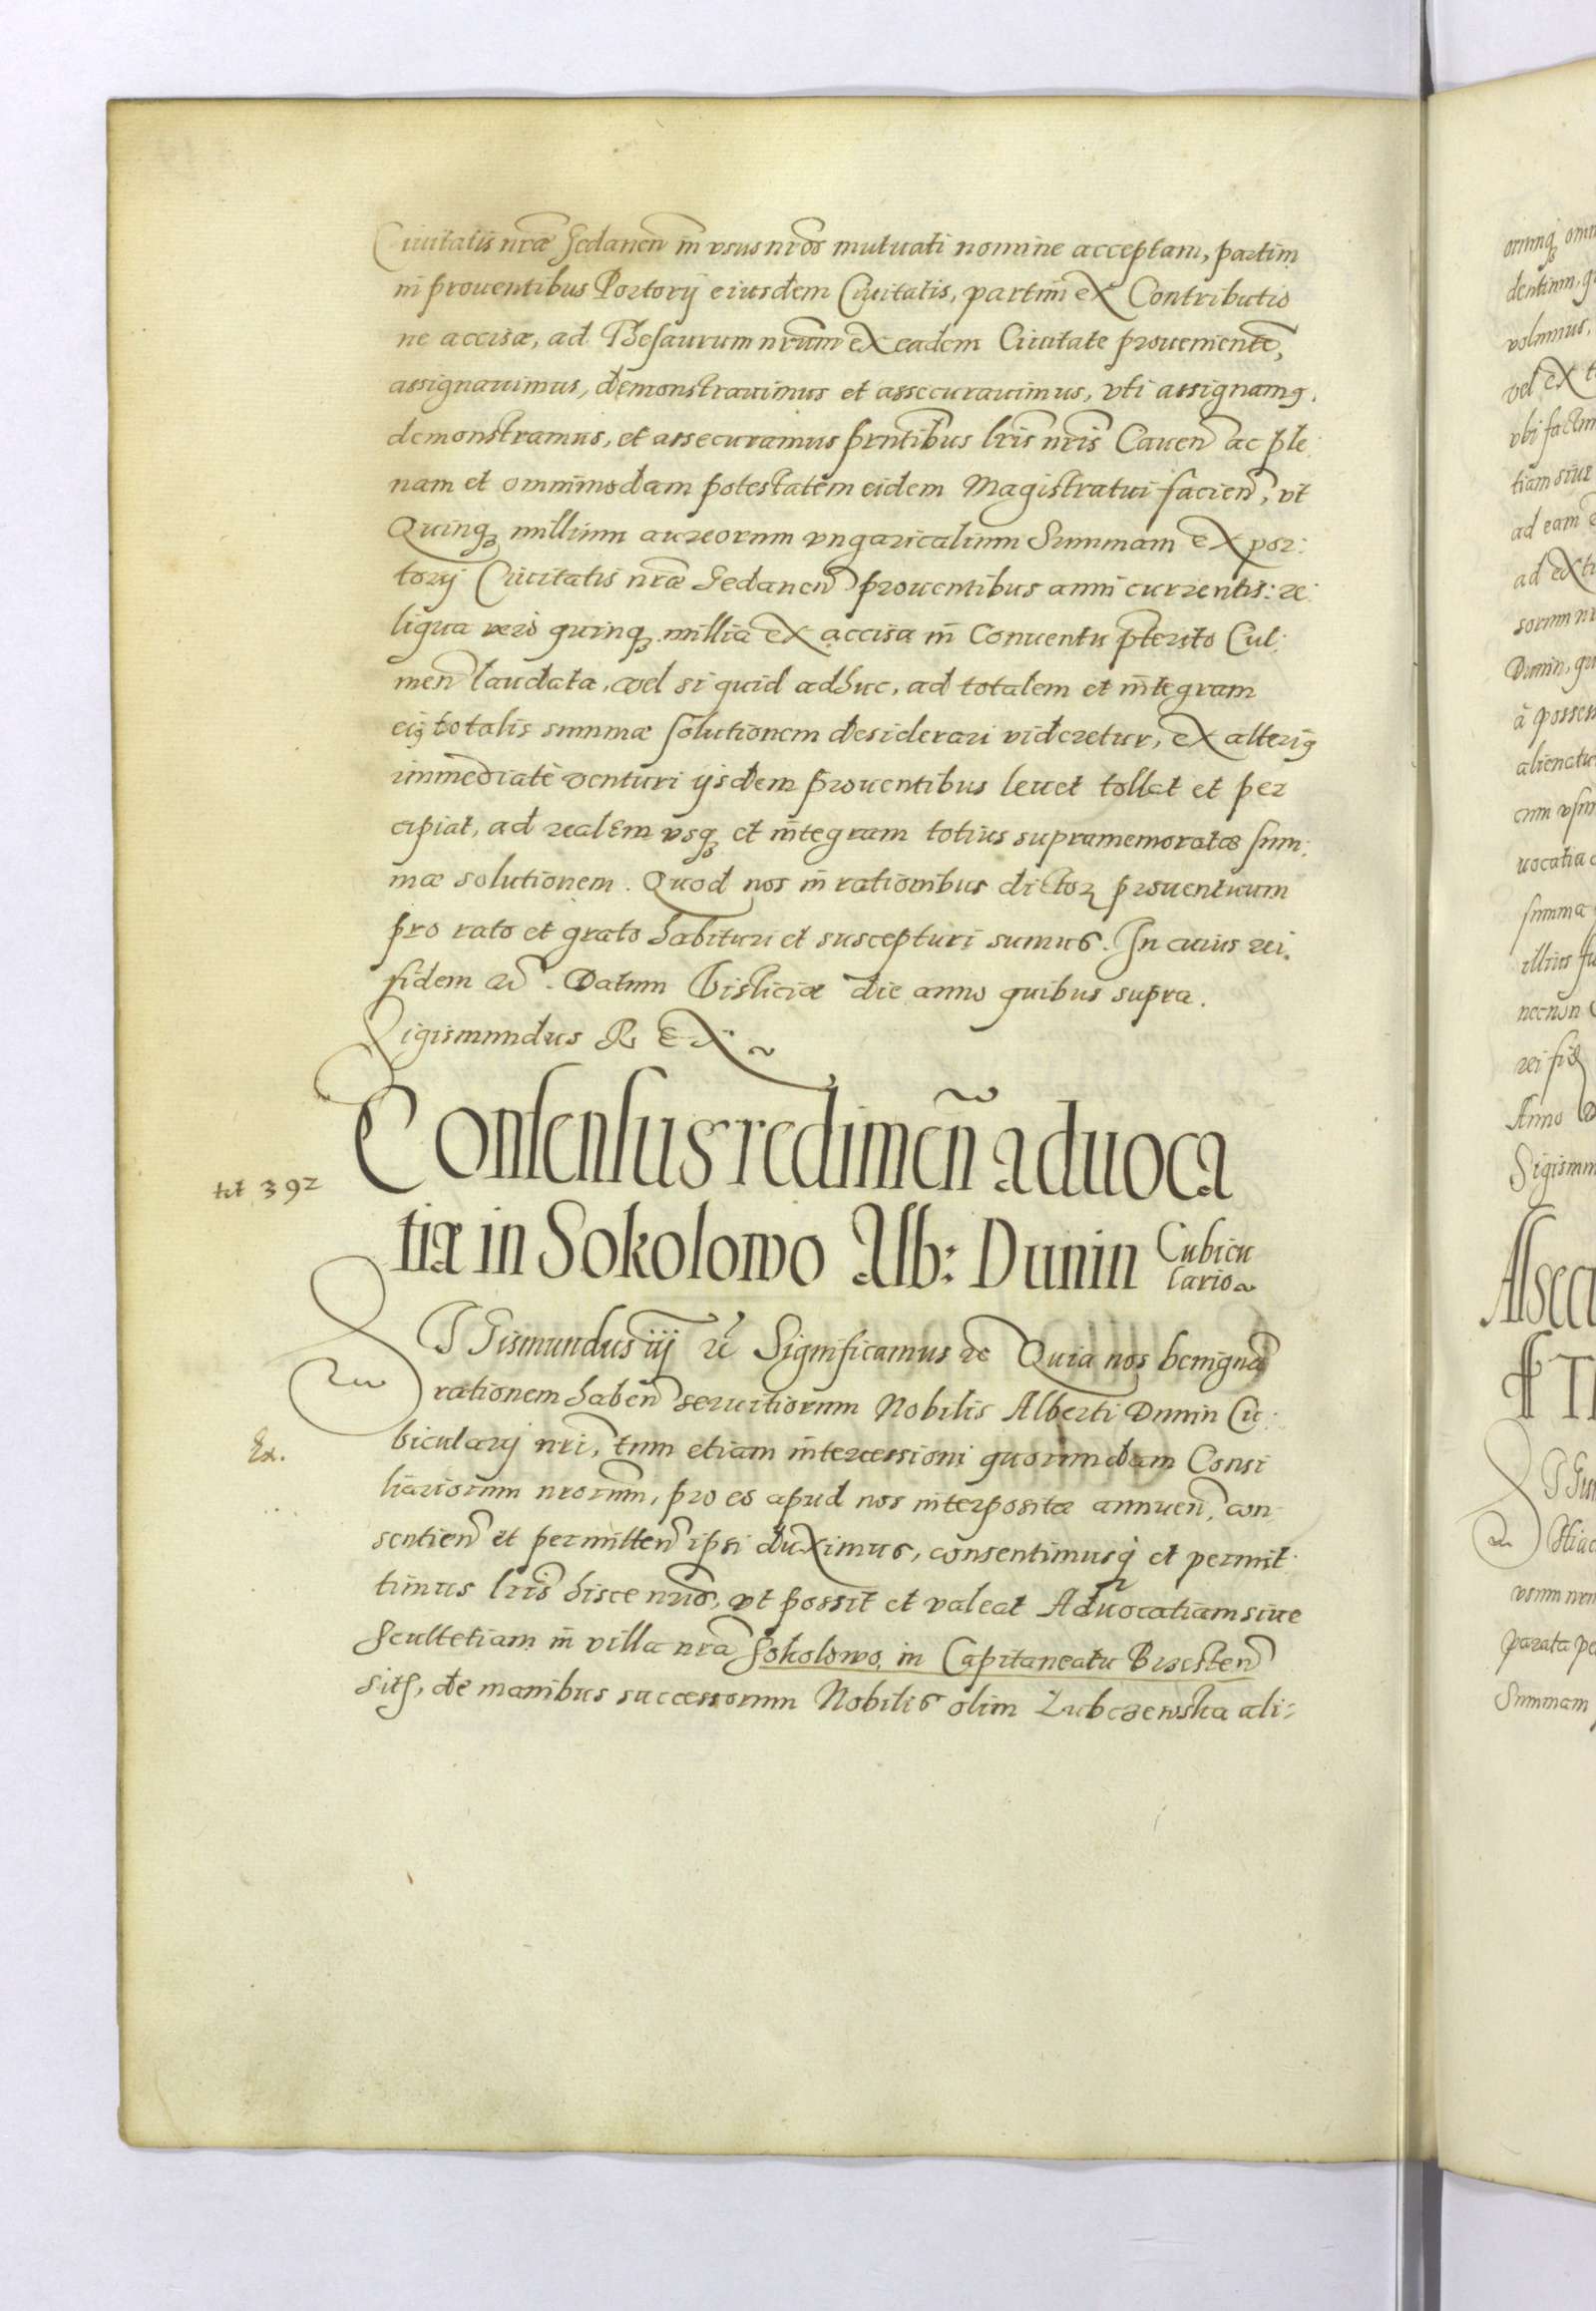 Ciuitatis nrae Gedanen in vsus nros mutuati nomine acceptam, partim
in prouentibus Portorij eiusdem Ciuitatis, partim ex Contributio
ne accisæ, ad Thesaurum nrum ex eadem Ciuitate prouenientē,
assignauimus, demonstrauimus et assecurauimus, vti assignamꝰ,
demonstramus, et assecuramus prntibus lris nris Cauen ac ple:
nam et omnimodam potestatem eidem Magistratui facien, vt
Quinqꝫ millium aureorum vngaricalium Summam ex por:
torij Ciuitatis nræ Gedanen prouentibus anni currentis: re:
liqua vero quinqꝫ millia ex accisa in Conuentu pterito Cul:
men laudata, vel si quid adhuc, ad totalem et integram
eiꝰ totalis summæ solutionem desiderari videretur, ex alteriꝰ
immediatè venturi ijsdem prouentibus leuet tollat et per
cipiat, ad realem vsqꝫ et integram totius supramemoratæ sum:
mæ solutionem. Quod nos in rationibus dictoꝝ prouentuum
pro rato et grato habituri et suscepturi sumus. In cuius rei
fidem etc. Datum Visliciæ die anno quibus supra.
Sigismundus REX
Consensus redimeñ aduoca
tiæ in Sokolowo Alb: Dunin Cubicu
lario
tit 392
SIGismundus iij etc Significamus etc Quia nos benignā
rationem haben seruitiorum Nobilis Alberti Dunin Cu:
bicularij nri, tum etiam intercessioni quorumdam Consi
Ex.
liariorum nrorum, pro eo apud nos interpositæ annuen, con
sentien et permitten ipsi duximus, consentimusqꝫ et permit:
timus lris hisce nris, vt possit et valeat Aduocatiam siue
Scultetiam in villa nra Sokolowo in Capitaneatu Brzesten
sitā, de manibus successorum Nobilis olim Lubczewska ali: